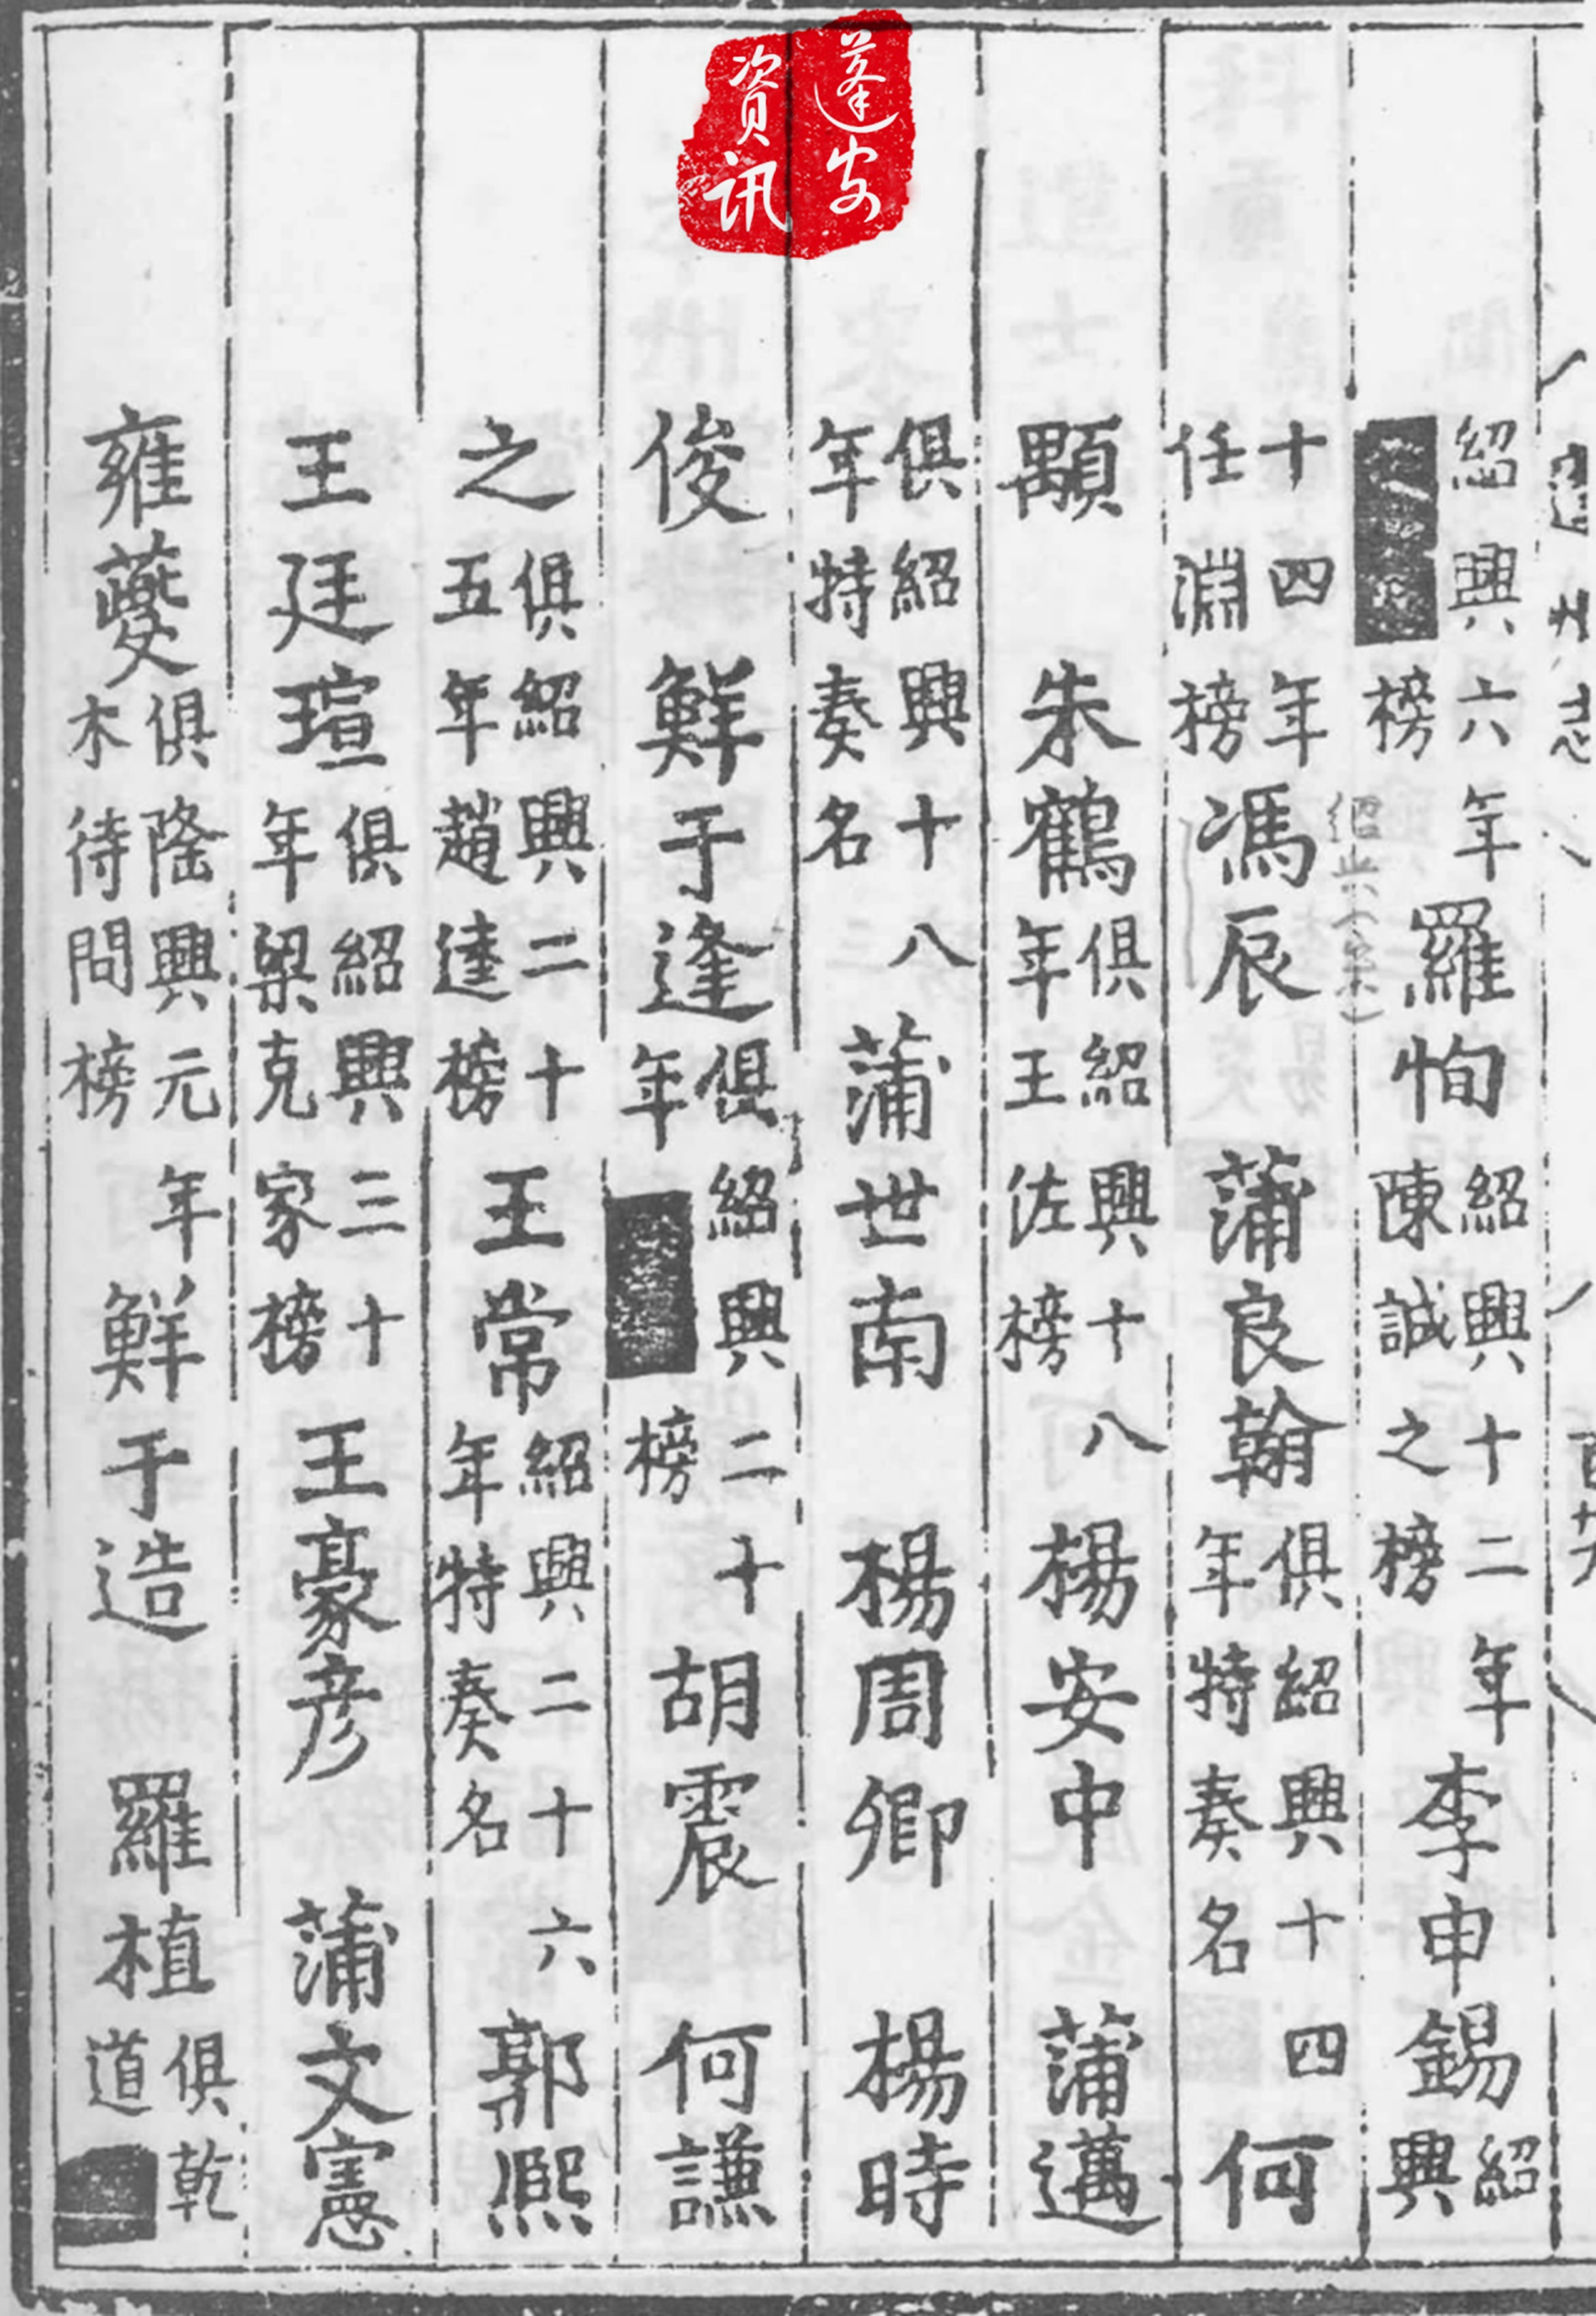 蓬安
資訊
紹興六年榜羅恂紹興十二年陳誠之榜李申錫紹興
十四年任淵榜馮辰 蒲良翰俱紹興十四年特奏名何
顒 朱鶴俱紹興十八年王佐榜楊安中 蒲邁
俱紹興十八年特奏名蒲世南 楊周卿 楊時
俊 鮮于逢俱紹興二十年榜胡震 何謙
之俱紹興二十五年趙逵榜王常紹興二十六年特奏名郭熈
王廷瑄俱紹興三十年梁克家榜王豪彦 蒲文憲
雍蔓俱隆興元年木待問榜鮮于造 羅植俱乾道